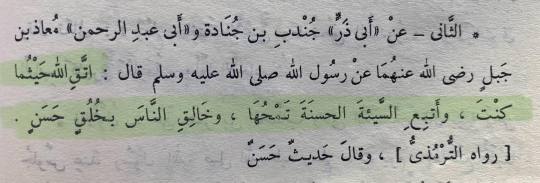 * الثَّانى – عنْ «أَبى ذَرٍّ» جُنْدبِ بن جُنَادة و«أَبى عبدِ الرحمنِ» مُعاذِ بنِ
جَبلٍ رضى الله عنهُمَا عن رسُولِ الله صلى الله عليه وسلم قال : اتَّقِ اللهَ حَيْثُما
كنْتَ ، وأَتبِعِ السَّيئةَ الحسنَةَ تَمْحُهَا ، وخَالِقِ النَّاسَ بخُلُقٍ حَسَنٍ .
[ رواه التِّرْمذىُّ ] ، وقالَ حَديثٌ حَسَنٌ